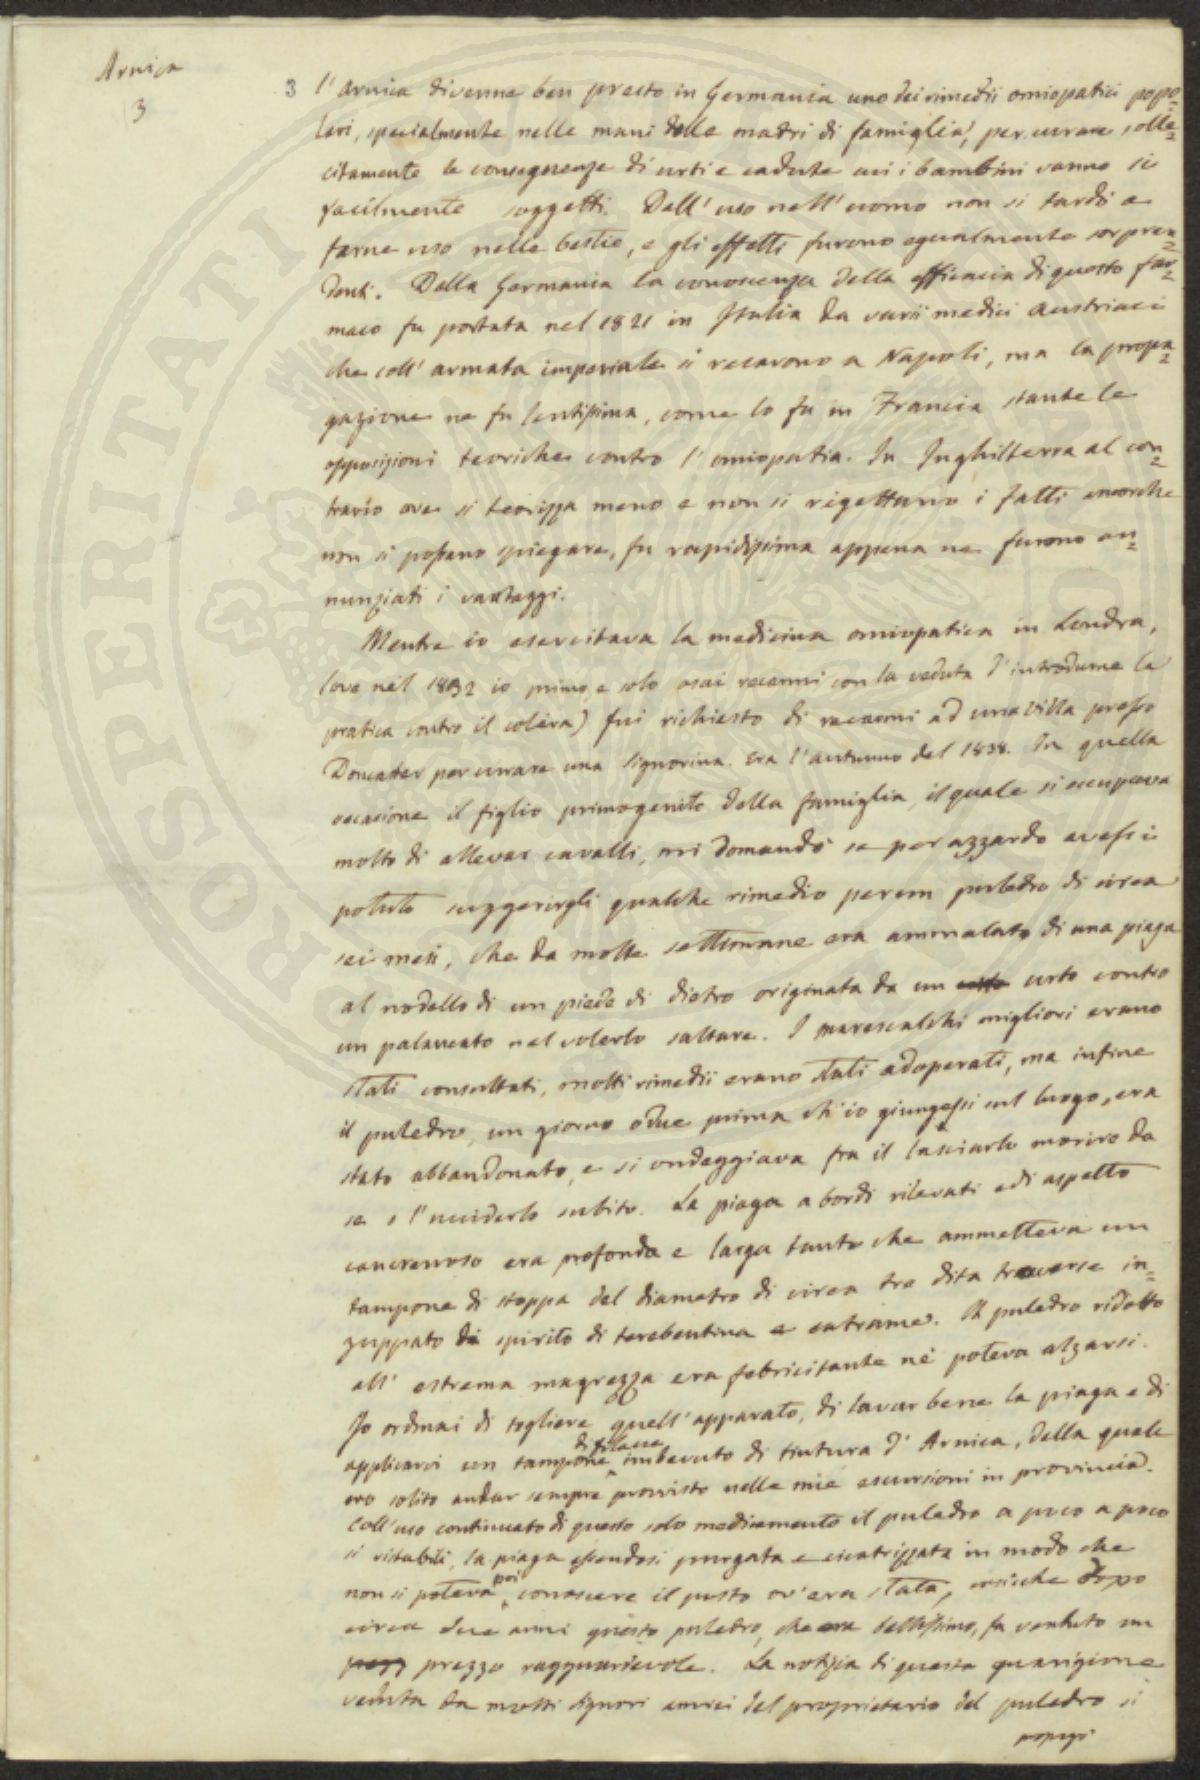 Arnica
3
3 l'Arnica divenne ben presto in Germania uno dei rimedii omiopatici popo=
lari, specialmente nelle mani delle madri di famiglia, per curare solle=
citamente le conseguenze di urti e cadute cui i bambini vanno sì
facilmente soggetti. Dall'uso nell'uomo non si tardò a
farne uso nelle bestie, e gli effetti furono egualmente sorpren=
denti. Dalla Germania la conoscenza della efficacia di questo far=
maco fu portata nel 1821 in Italia da varii medici Austriaci
che coll'armata imperiale si recarono a Napoli, ma la propa=
gazione ne fu lentissima, come lo fu in Francia stante le
opposizioni teoriche contro l'omiopatia. In Inghilterra al con=
trario ove si teorizza meno e non si rigettano i fatti ancorche
non si possano spiegare, fu rapidissima appena ne furono an=
nunziati i vantaggi.
Mentre io esercitava la medicina omiopatica in Londra,
(ove nel 1832 io primo e solo osai recarmi con la veduta d'introdurne la
pratica contro il colèra) fui richiesto di recarmi ad una villa presso
Doncaster per curare una signorina. Era l'autunno del 1838. In quella
occasione il figlio primogenito della famiglia, il quale si occupava
molto di allevar cavalli, mi domandò se per azzardo avessi
potuto suggerirgli qualche rimedio per un puledro di circa
sei mesi, che da molte settimane era ammalato di una piaga
al nodello di un piede di dietro originata da un urto contro
un palancato nel volerlo saltare. I marescalchi migliori erano
stati consultati, molti rimedii erano stati adoperati, ma infine
il puledro, un giorno o due prima ch'io giungessi sul luogo, era
stato abbandonato, e si ondeggiava fra il lasciarlo morire da
se o l'ucciderlo subito. La piaga a bordi rilevati e di aspetto
cancrenoso era profonda e larga tanto che ammetteva un
tampone di stoppa del diametro di circa tre dita traverse in=
zuppato di spirito di terebentina e catrame. Il puledro ridotto
all'estrema magrezza era febricitante nè poteva alzarsi.
Io ordinai di togliere quell'apparato, di lavar bene la piaga e di
applicarvi un tampone di filacce imbevuto di tintura d'Arnica, della quale
ero solito andar sempre provvisto nelle mie escursioni in provincia.
Coll'uso continuato di questo solo medicamento il puledro a poco a poco
si ristabilì, la piaga essendosi purgata e cicatrizzata in modo che
non si poteva poi conoscere il posto ov'era stata, cosicche dopo
circa due anni questo puledro, che era bellissimo, fu venduto un
prezzo ragguardevole. La notizia di questa guarigione
veduta da molti signori amici del proprietario del puledro si
propagò